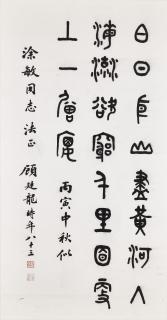 白日依山盡黃河入
海流欲窮千里目更
上一層樓 丙寅中秋似
涂敏同志 法正 顧廷龍時年八十三